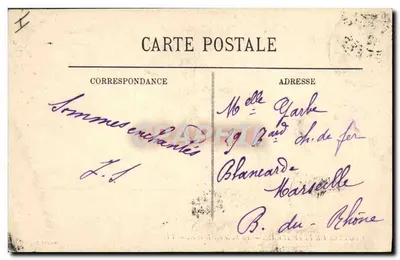 CARTE POSTALE
CORRESPONDANCE
ADRESSE
Sommes enchantés
J. S
Melle Garbe
9 Bard ch. de fer
Blancarde
Marseille
B. du - Rhône